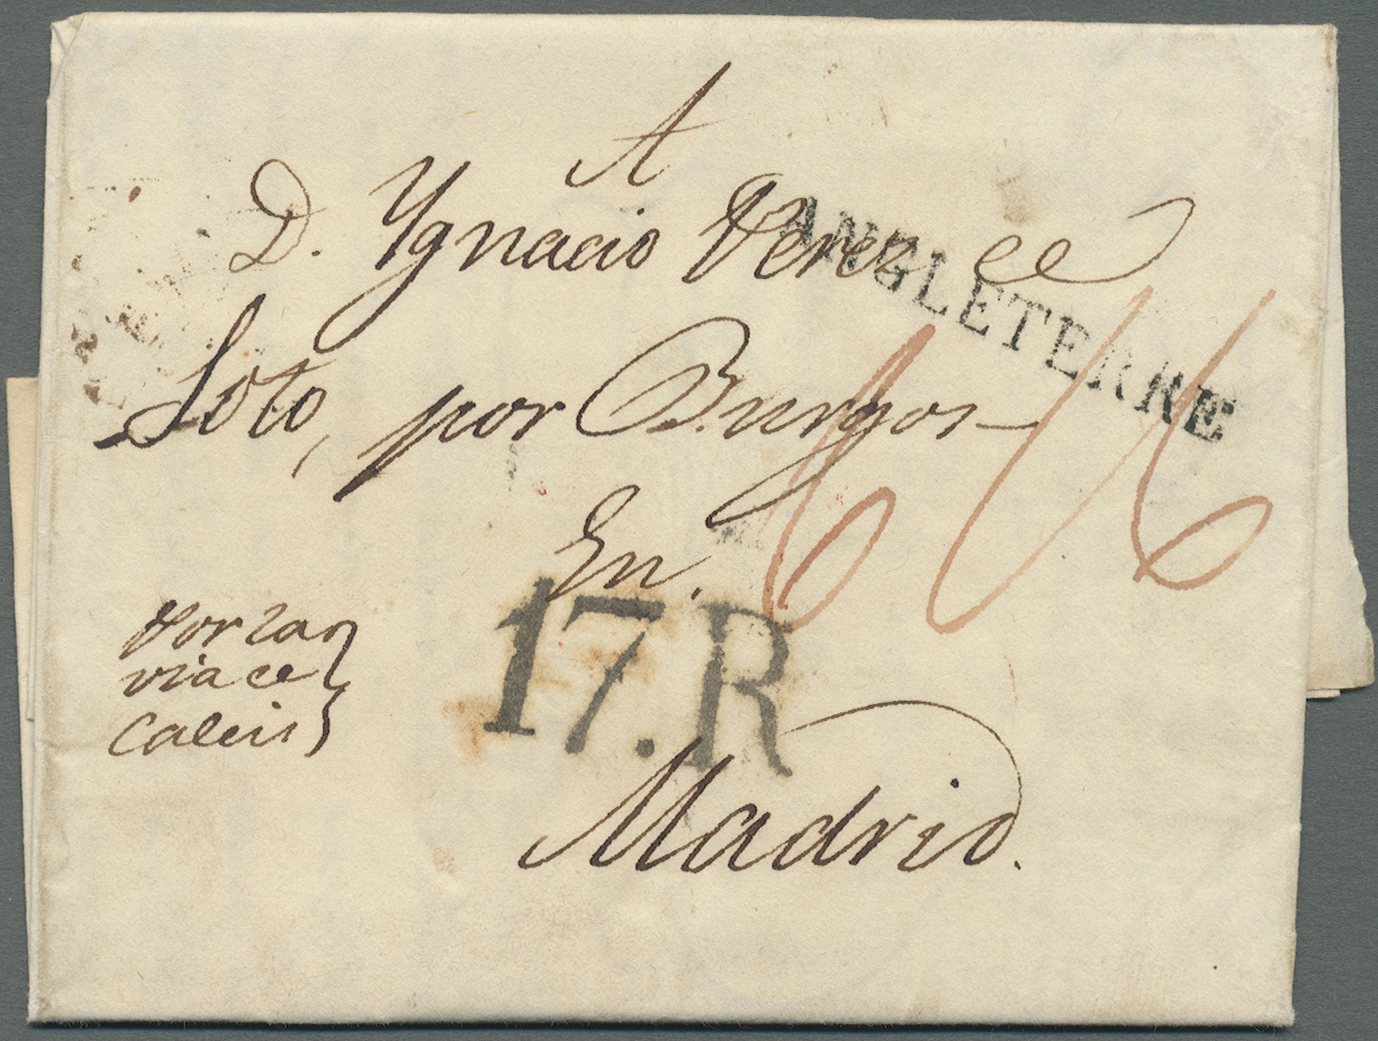 A
D. Ygnacio Perez de
ANGLETERRE
Soto, por Burgos
En.
17.R
Madrid.
via de
Calais